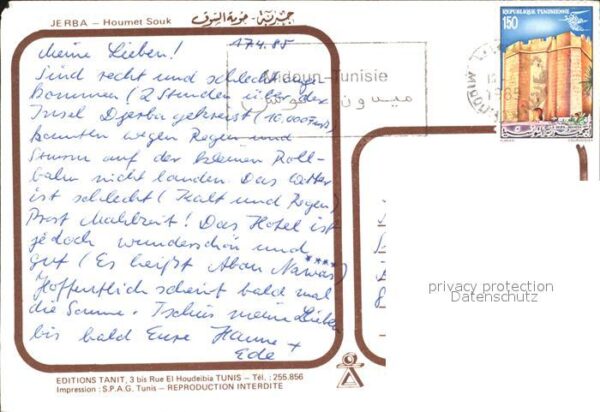 JERBA – Houmet Souk
جربة - حومة السوق
REPUBLIQUE TUNISIENNE
150
17.4.85
Midoun-Tunisie
ميدون تونس
1985
Meine Lieben!
Sind recht und schlecht ange-
kommen (2 Stunden über der
Insel Djerba gekreist (10.000 Fuß)
konnten wegen Regen und
Sturm auf der kleinen Roll-
bahn nicht landen. Das Wetter
ist schlecht (Kalt und Regen)
Prost Mahlzeit! Das Hotel ist
jedoch wunderschön und
gut (Es heißt Abou Nawas ****)
Hoffentlich scheint bald mal
die Sonne. Tschüs meine Lieben
bis bald Eure Hanne +
Ede
privacy protection
Datenschutz
EDITIONS TANIT, 3 bis Rue El Houdeibia TUNIS – Tél. : 255.856
Impression : S.P.A.G. Tunis – REPRODUCTION INTERDITE